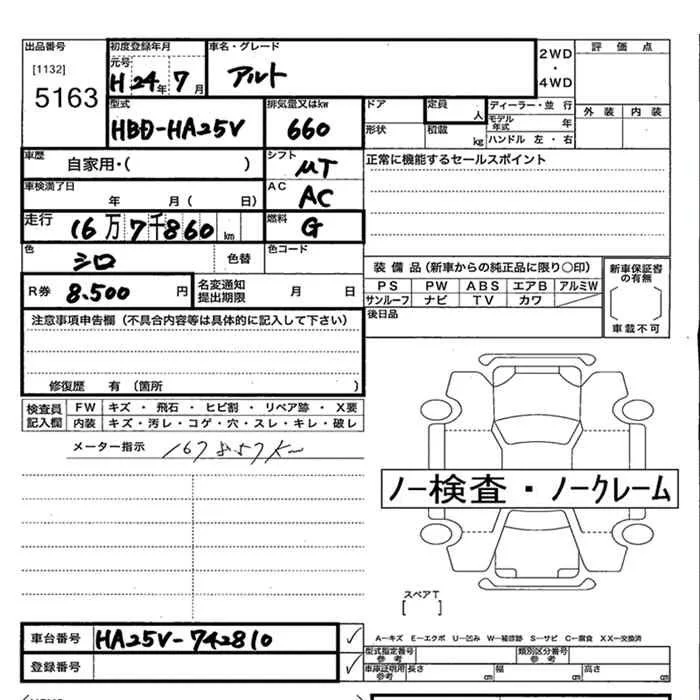 出品番号 初度登録年月 車名・グレード 評価点
[1132] 元号 2WD
5163 H 24年 7月 アルト ・
4WD
型式 排気量又はkw ドア 定員 人 ディーラー・並行 外装 内装
HBD-HA25V 660 形状 積載 kg モデル年式 年
ハンドル 左・右
車歴 自家用・( ) シフト μT 正常に機能するセールスポイント
車検満了日 年 月( 日) AC AC
走行 16万7千860 km 燃料 G
色 シロ 色替 色コード
装備品(新車からの純正品に限り○印) 新車保証書の有無
R券 8.500 円 名変通知提出期限 月 日 PS PW ABS エアB アルミW
サンルーフ ナビ TV カワ 車載不可
注意事項申告欄(不具合内容等は具体的に記入して下さい) 後日品
修復歴 有(箇所 )
検査員記入欄 FW キズ・飛石・ヒビ割・リペア跡・X要
内装 キズ・汚レ・コゲ・穴・スレ・キレ・破レ
メーター指示 167857K
ノー検査・ノークレーム
スペアT
[ ]
車台番号 HA25V-742810 ✓ A−キズ E−エクボ U−凹み W−補修跡 S−サビ C−腐食 XX−交換済
型式指定番号 参考 類別区分番号 参考
登録番号 ✓ 車庫証明用参考 長さ cm 幅 cm 高さ cm